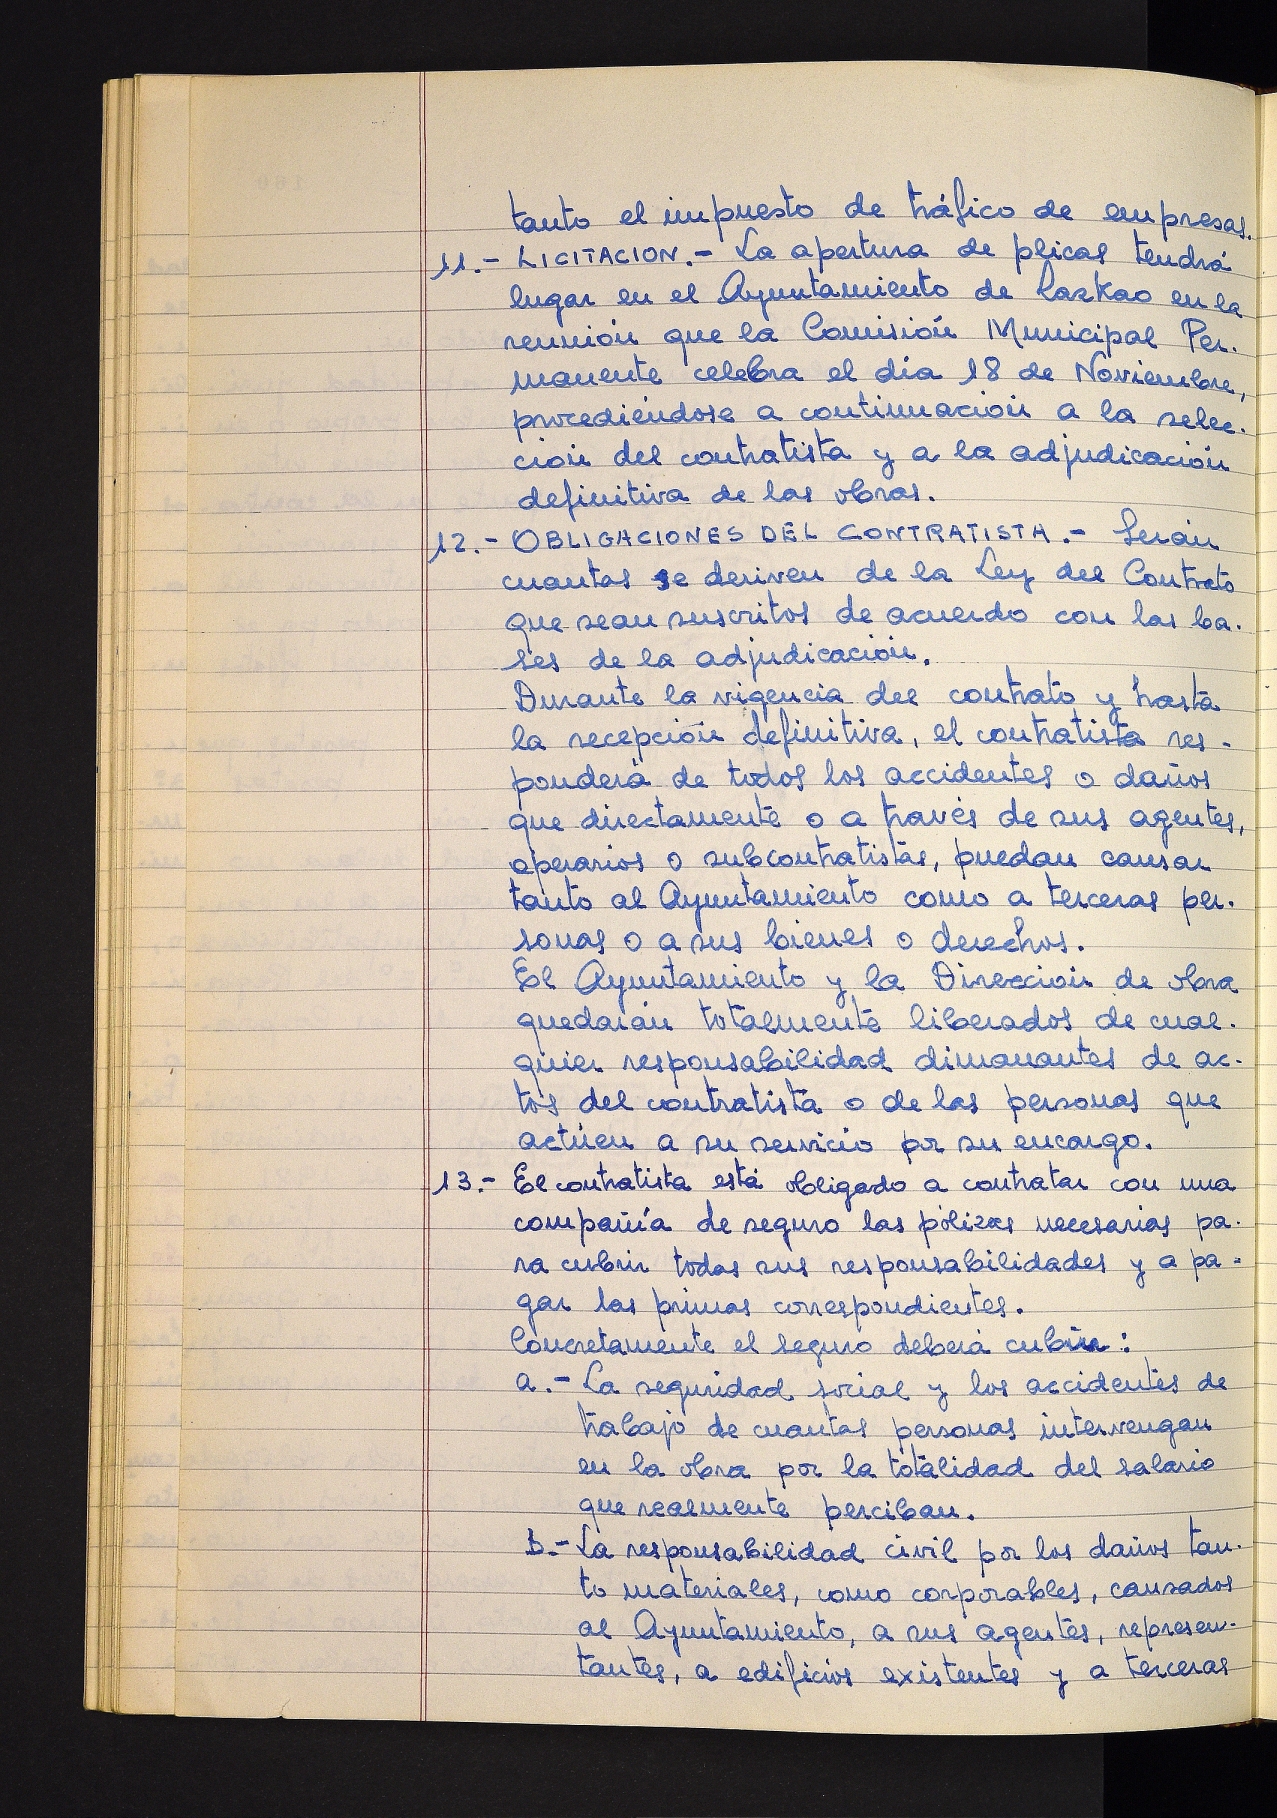 tanto el impuesto de tráfico de empresas.
11.- LICITACION.- La apertura de plicas tendrá
lugar en el Ayuntamiento de Lazkao en la
reunión que la Comisión Municipal Per-
manente celebra el día 18 de Noviembre,
procediéndose a continuación a la selec-
ción del contratista y a la adjudicación
definitiva de las obras.
12.- OBLIGACIONES DEL CONTRATISTA.- Serán
cuantas se deriven de la Ley del Contrato
que sean suscritos de acuerdo con las ba-
ses de la adjudicación.
Durante la vigencia del contrato y hasta
la recepción definitiva, el contratista res-
ponderá de todos los accidentes o daños
que directamente o a través de sus agentes,
operarios o subcontratistas, puedan causar
tanto al Ayuntamiento como a terceras per-
sonas o a sus bienes o derechos.
El Ayuntamiento y la Dirección de obra
quedarán totalmente liberados de cual-
quier responsabilidad dimanantes de ac-
tos del contratista o de las personas que
actúen a su servicio por su encargo.
13.- El contratista está obligado a contratar con una
compañía de seguro las pólizas necesarias pa-
ra cubrir todas sus responsabilidades y a pa-
gar las primas correspondientes.
Concretamente el seguro deberá cubrir:
a.- La seguridad social y los accidentes de
trabajo de cuantas personas intervengan
en la obra por la totalidad del salario
que realmente perciban.
b.- La responsabilidad civil por los daños tan-
to materiales, como corporables, causados
al Ayuntamiento, a sus agentes, represen-
tantes, a edificios existentes y a terceras